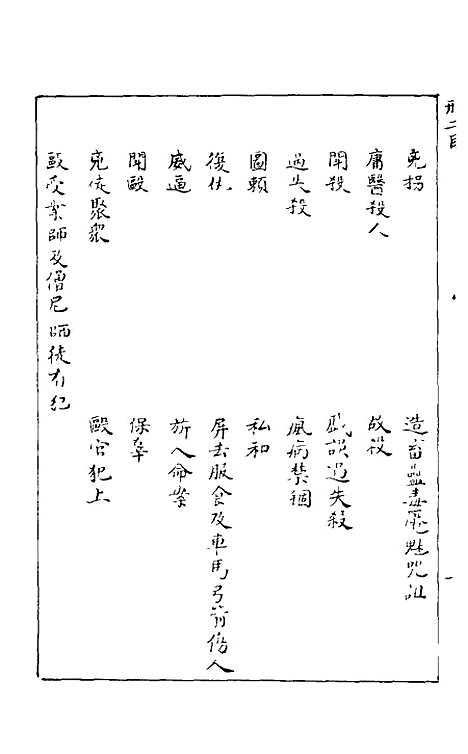 刑二目
兇拐
造畜蠱毒魘魅咒詛
庸醫殺人
故殺
鬥殺
戲誤過失殺
過失殺
瘋病禁錮
圖賴
私和
復仇
屏去服食及車馬弓箭傷人
威逼
旂人命案
鬥毆
保辜
兇徒聚眾
毆官犯上
毆受業師及僧尼師徒有